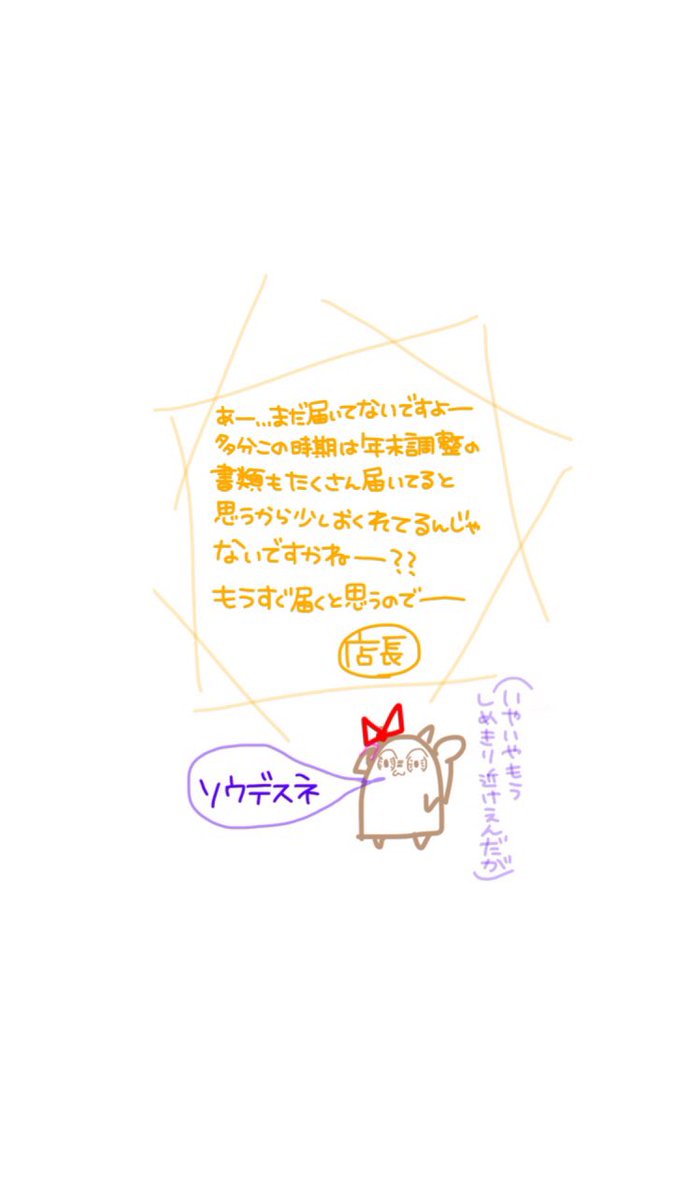 あー…まだ届いてないですよー
多分この時期は年末調整の
書類もたくさん届いてると
思うから少しおくれてるんじゃ
ないですかねー??
もうすぐ届くと思うのでー
店長
ソウデスネ
(いやいやもう
しめきり近けえんだが)